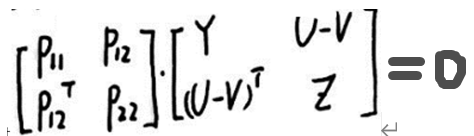 [P₁₁ P₁₂; P₁₂ᵀ P₂₂] · [Y U-V; (U-V)ᵀ Z] = 0